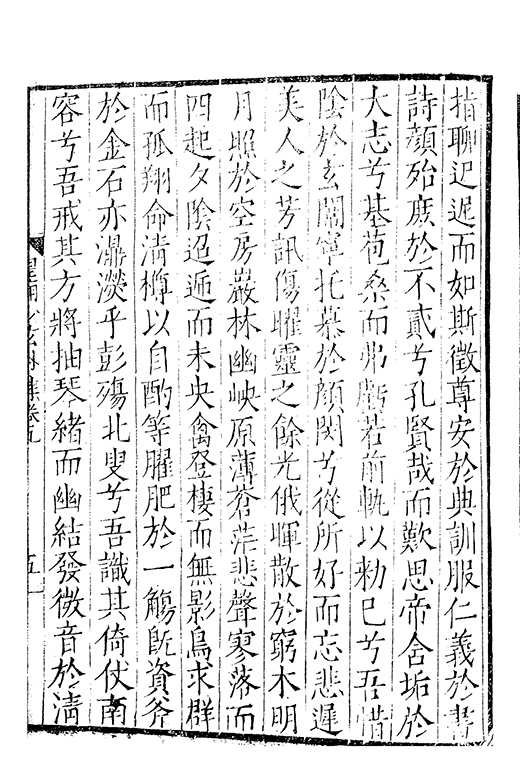 指聊迟遟而如斯徵尊安於典訓服仁義於書
詩顔殆庶於不貳兮孔賢哉而歎思帝舍垢於
大志兮基苞桑而弗虧若前軌以勑巳兮吾惜
陰於玄關寧托慕於顔閔兮從所好而忘悲遲
美人之芳訊傷曜靈之餘光俄暉散於窮木明
月照於空房巖林幽岟原薄蒼茫悲聲寥落而
四起夕陰迢遞而未央禽登棲而無影鳥求群
而孤翔命淸樽以自酌等臞肥於一觴旣資斧
於金石亦㶑灔乎彭殤北叟兮吾識其倚伏南
容兮吾戒其方將抽琴緒而幽結發微音於淸
皇甫少玄外集卷九
五